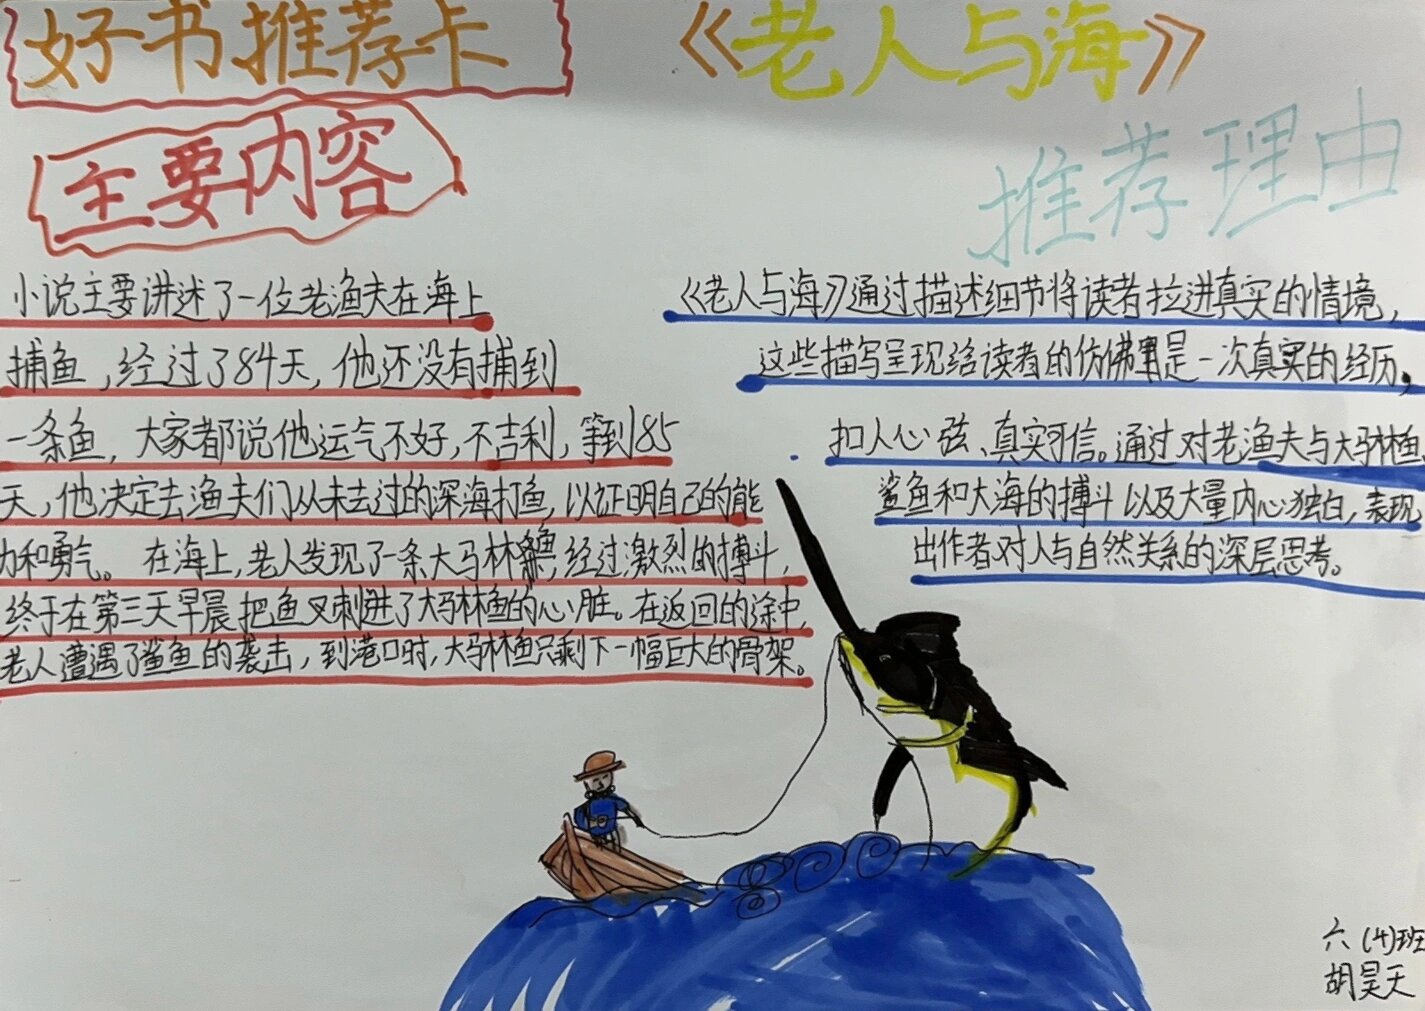 好书推荐卡
《老人与海》
主要内容
小说主要讲述了一位老渔夫在海上
捕鱼，经过了84天，他还没有捕到
一条鱼，大家都说他运气不好，不吉利，等到85
天，他决定去渔夫们从未去过的深海打鱼，以证明自己的能
力和勇气。在海上，老人发现了一条大马林鱼，经过激烈的搏斗，
终于在第三天早晨把鱼叉刺进了大马林鱼的心脏。在返回的途中，
老人遭遇了鲨鱼的袭击，到港口时，大马林鱼只剩下一幅巨大的骨架。
推荐理由
《老人与海》通过描述细节将读者拉进真实的情境，
这些描写呈现给读者的仿佛是一次真实的经历，
扣人心弦、真实可信。通过对老渔夫与大马林鱼、
鲨鱼和大海的搏斗以及大量内心独白，表现
出作者对人与自然关系的深层思考。
六(4)班
胡昊天